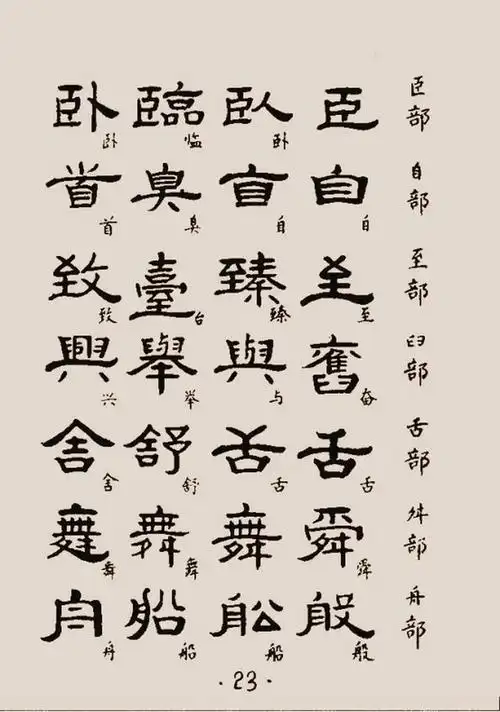 臣部 臣 臥卧 臨临 卧卧
自部 自自 自自 臭臭 首首
至部 至至 臻臻 臺台 致致
臼部 奮奋 與与 舉举 興兴
舌部 舌舌 舌舌 舒舒 舍舍
舛部 舜舜 舞舞 舞舞 舞舞
舟部 般般 舩船 船船 舟舟
·23·